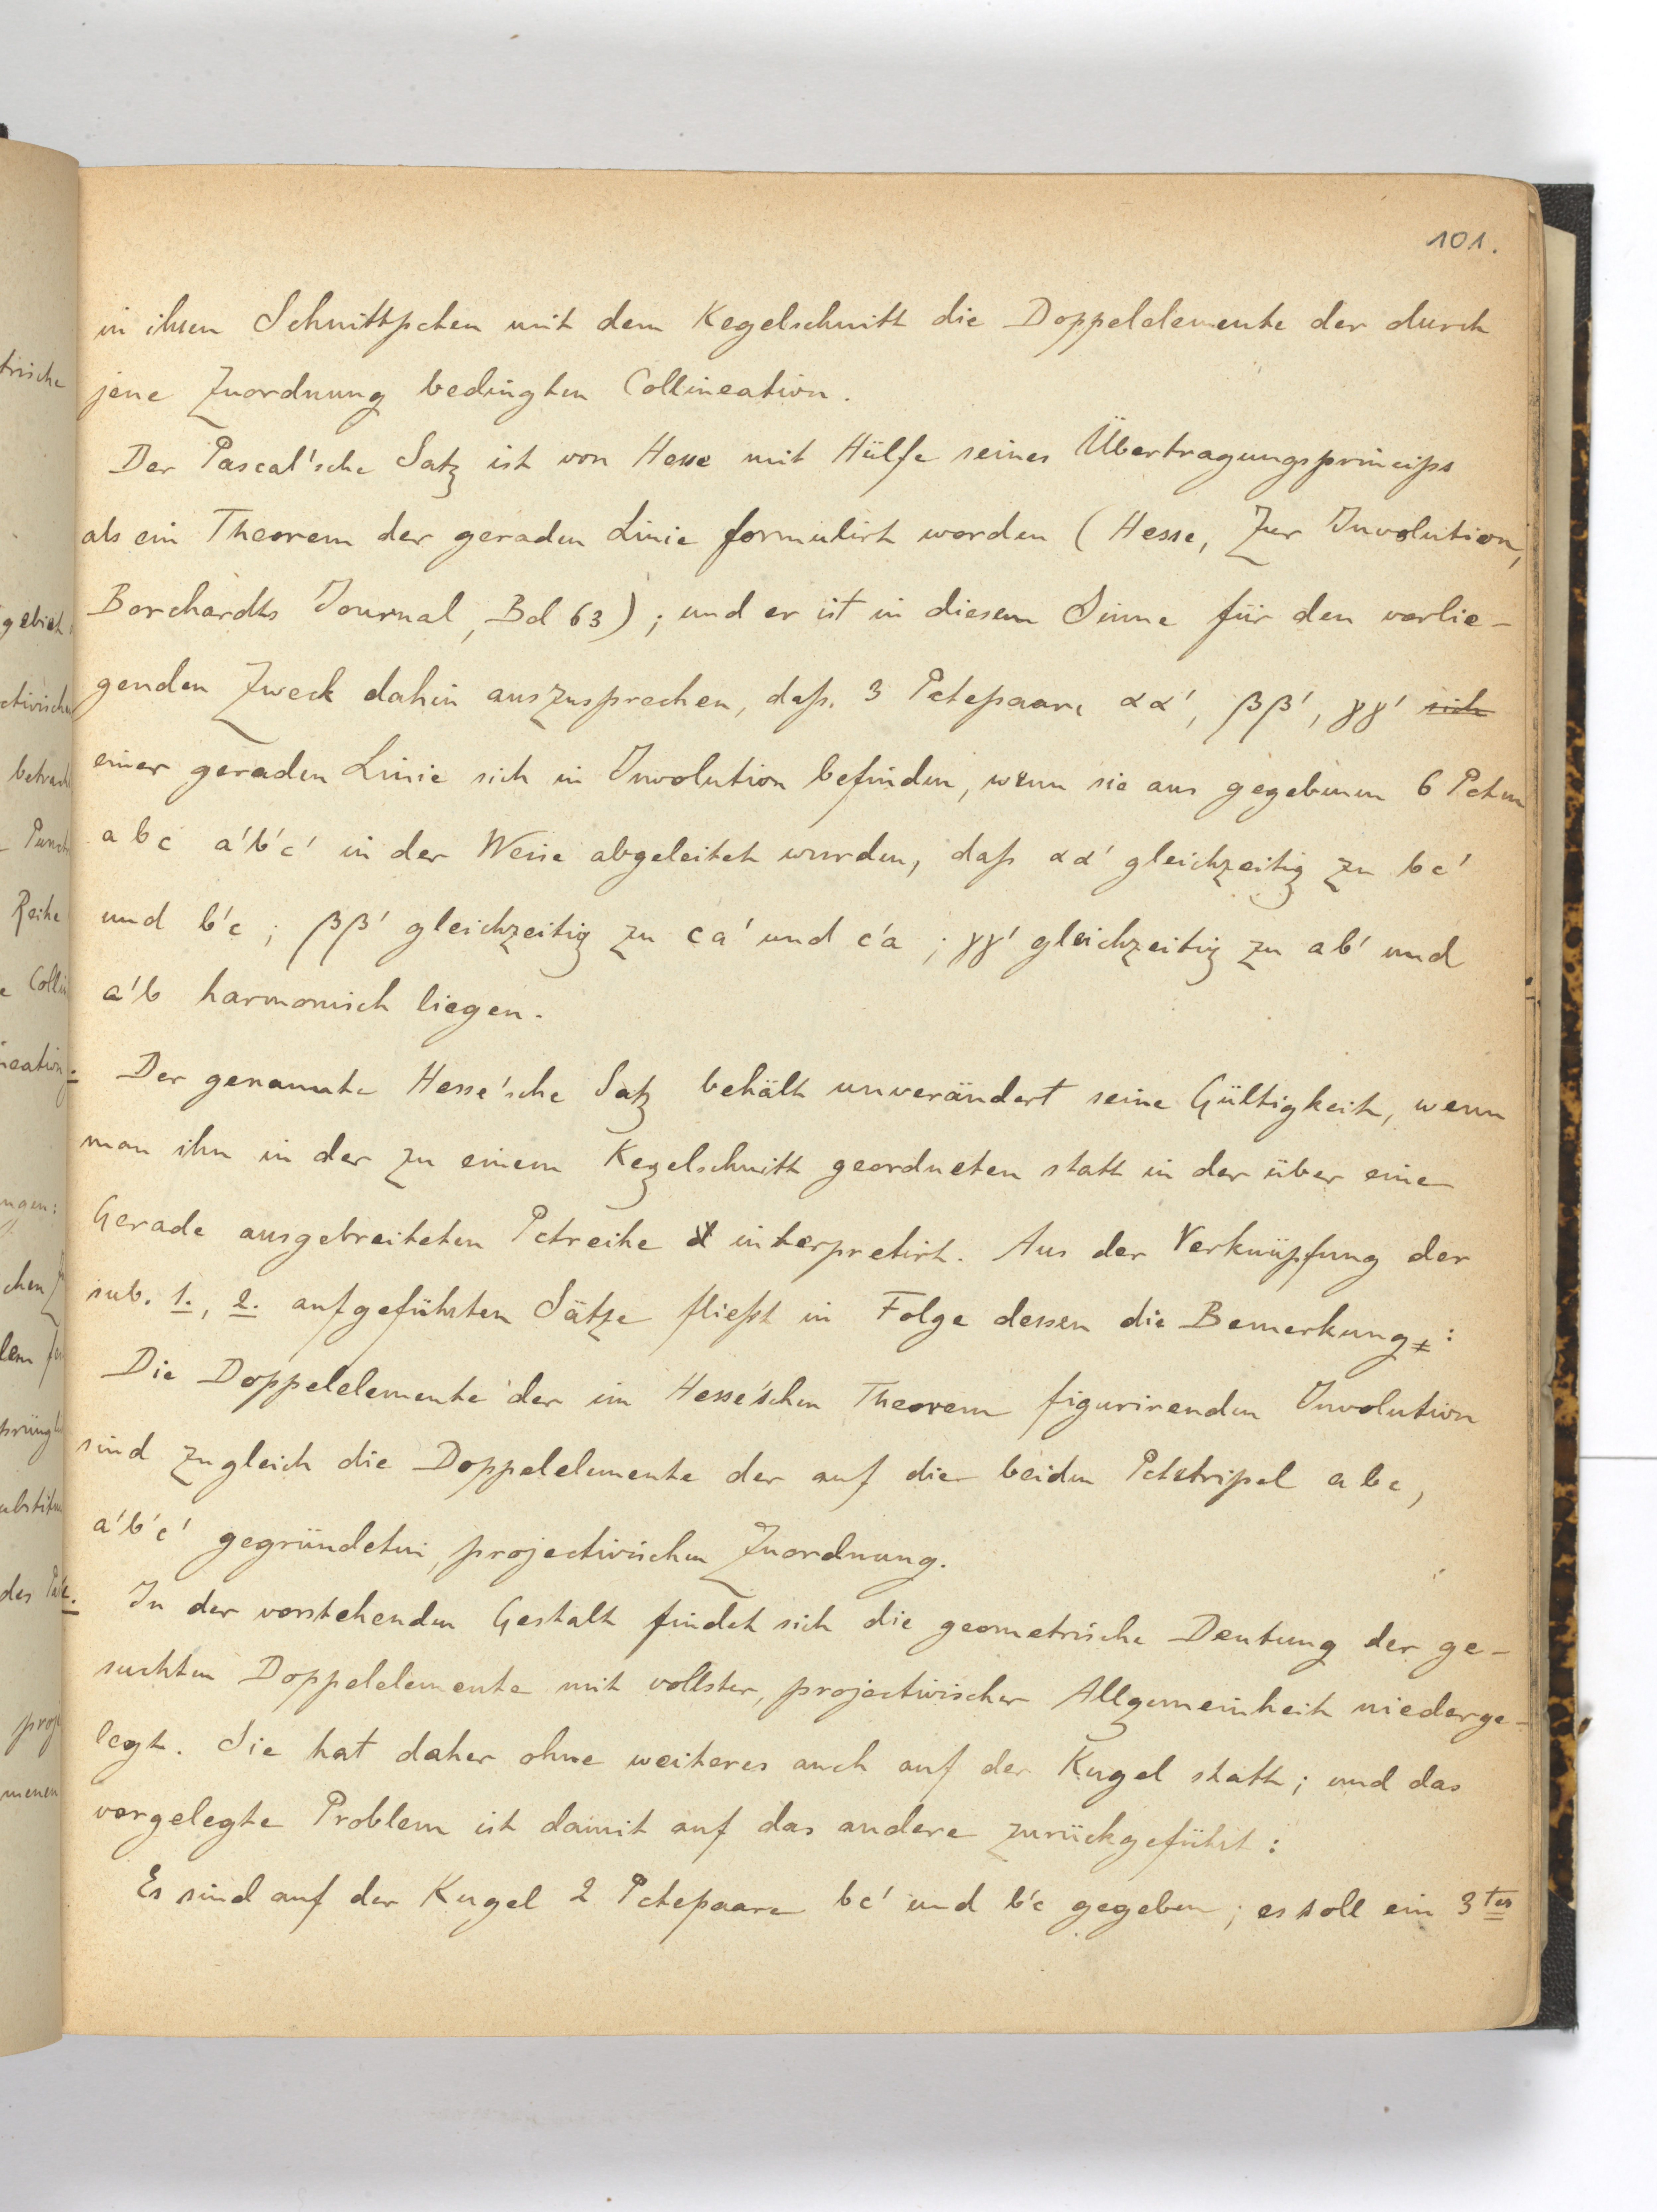 101.
in ihren Schnittpcten mit dem Kegelschnitt die Doppelelemente der durch
jene Zuordnung bedingten Collineation.
Der Pascal'sche Satz ist von Hesse mit Hülfe seines Übertragungsprincips
als ein Theorem der geraden Linie formulirt worden (Hesse, Zur Involution,
Borchardts Journal, Bd 63); und er ist in diesem Sinne für den vorlie-
genden Zweck dahin auszusprechen, daß 3 Pctepaare αα', ββ', γγ' sich
einer geraden Linie sich in Involution befinden, wenn sie aus gegebenen 6 Pcten
a b c a'b'c' in der Weise abgeleitet wurden, daß αα' gleichzeitig zu bc'
und b'c; ββ' gleichzeitig zu ca' und c'a; γγ' gleichzeitig zu ab' und
a'b harmonisch liegen.
Der genannte Hesse'sche Satz behält unverändert seine Gültigkeit, wenn
man ihn in der zu einem Kegelschnitt geordneten statt in der über eine
Gerade ausgebreiteten Pctreihe interpretirt. Aus der Verknüpfung der
sub. 1., 2. aufgeführten Sätze fließt in Folge dessen die Bemerkung:
Die Doppelelemente der im Hesse'schen Theorem figurirenden Involution
sind zugleich die Doppelelemente der auf die beiden Pctetripel abc,
a'b'c' gegründeten, projectivischen Zuordnung.
In der vorstehenden Gestalt findet sich die geometrische Deutung der ge-
suchten Doppelelemente mit vollster, projectivischer Allgemeinheit niederge-
legt. Sie hat daher ohne weiteres auch auf der Kugel statt; und das
vorgelegte Problem ist damit auf das andere zurückgeführt:
Es sind auf der Kugel 2 Pctepaare bc' und b'c gegeben; es soll ein 3tes